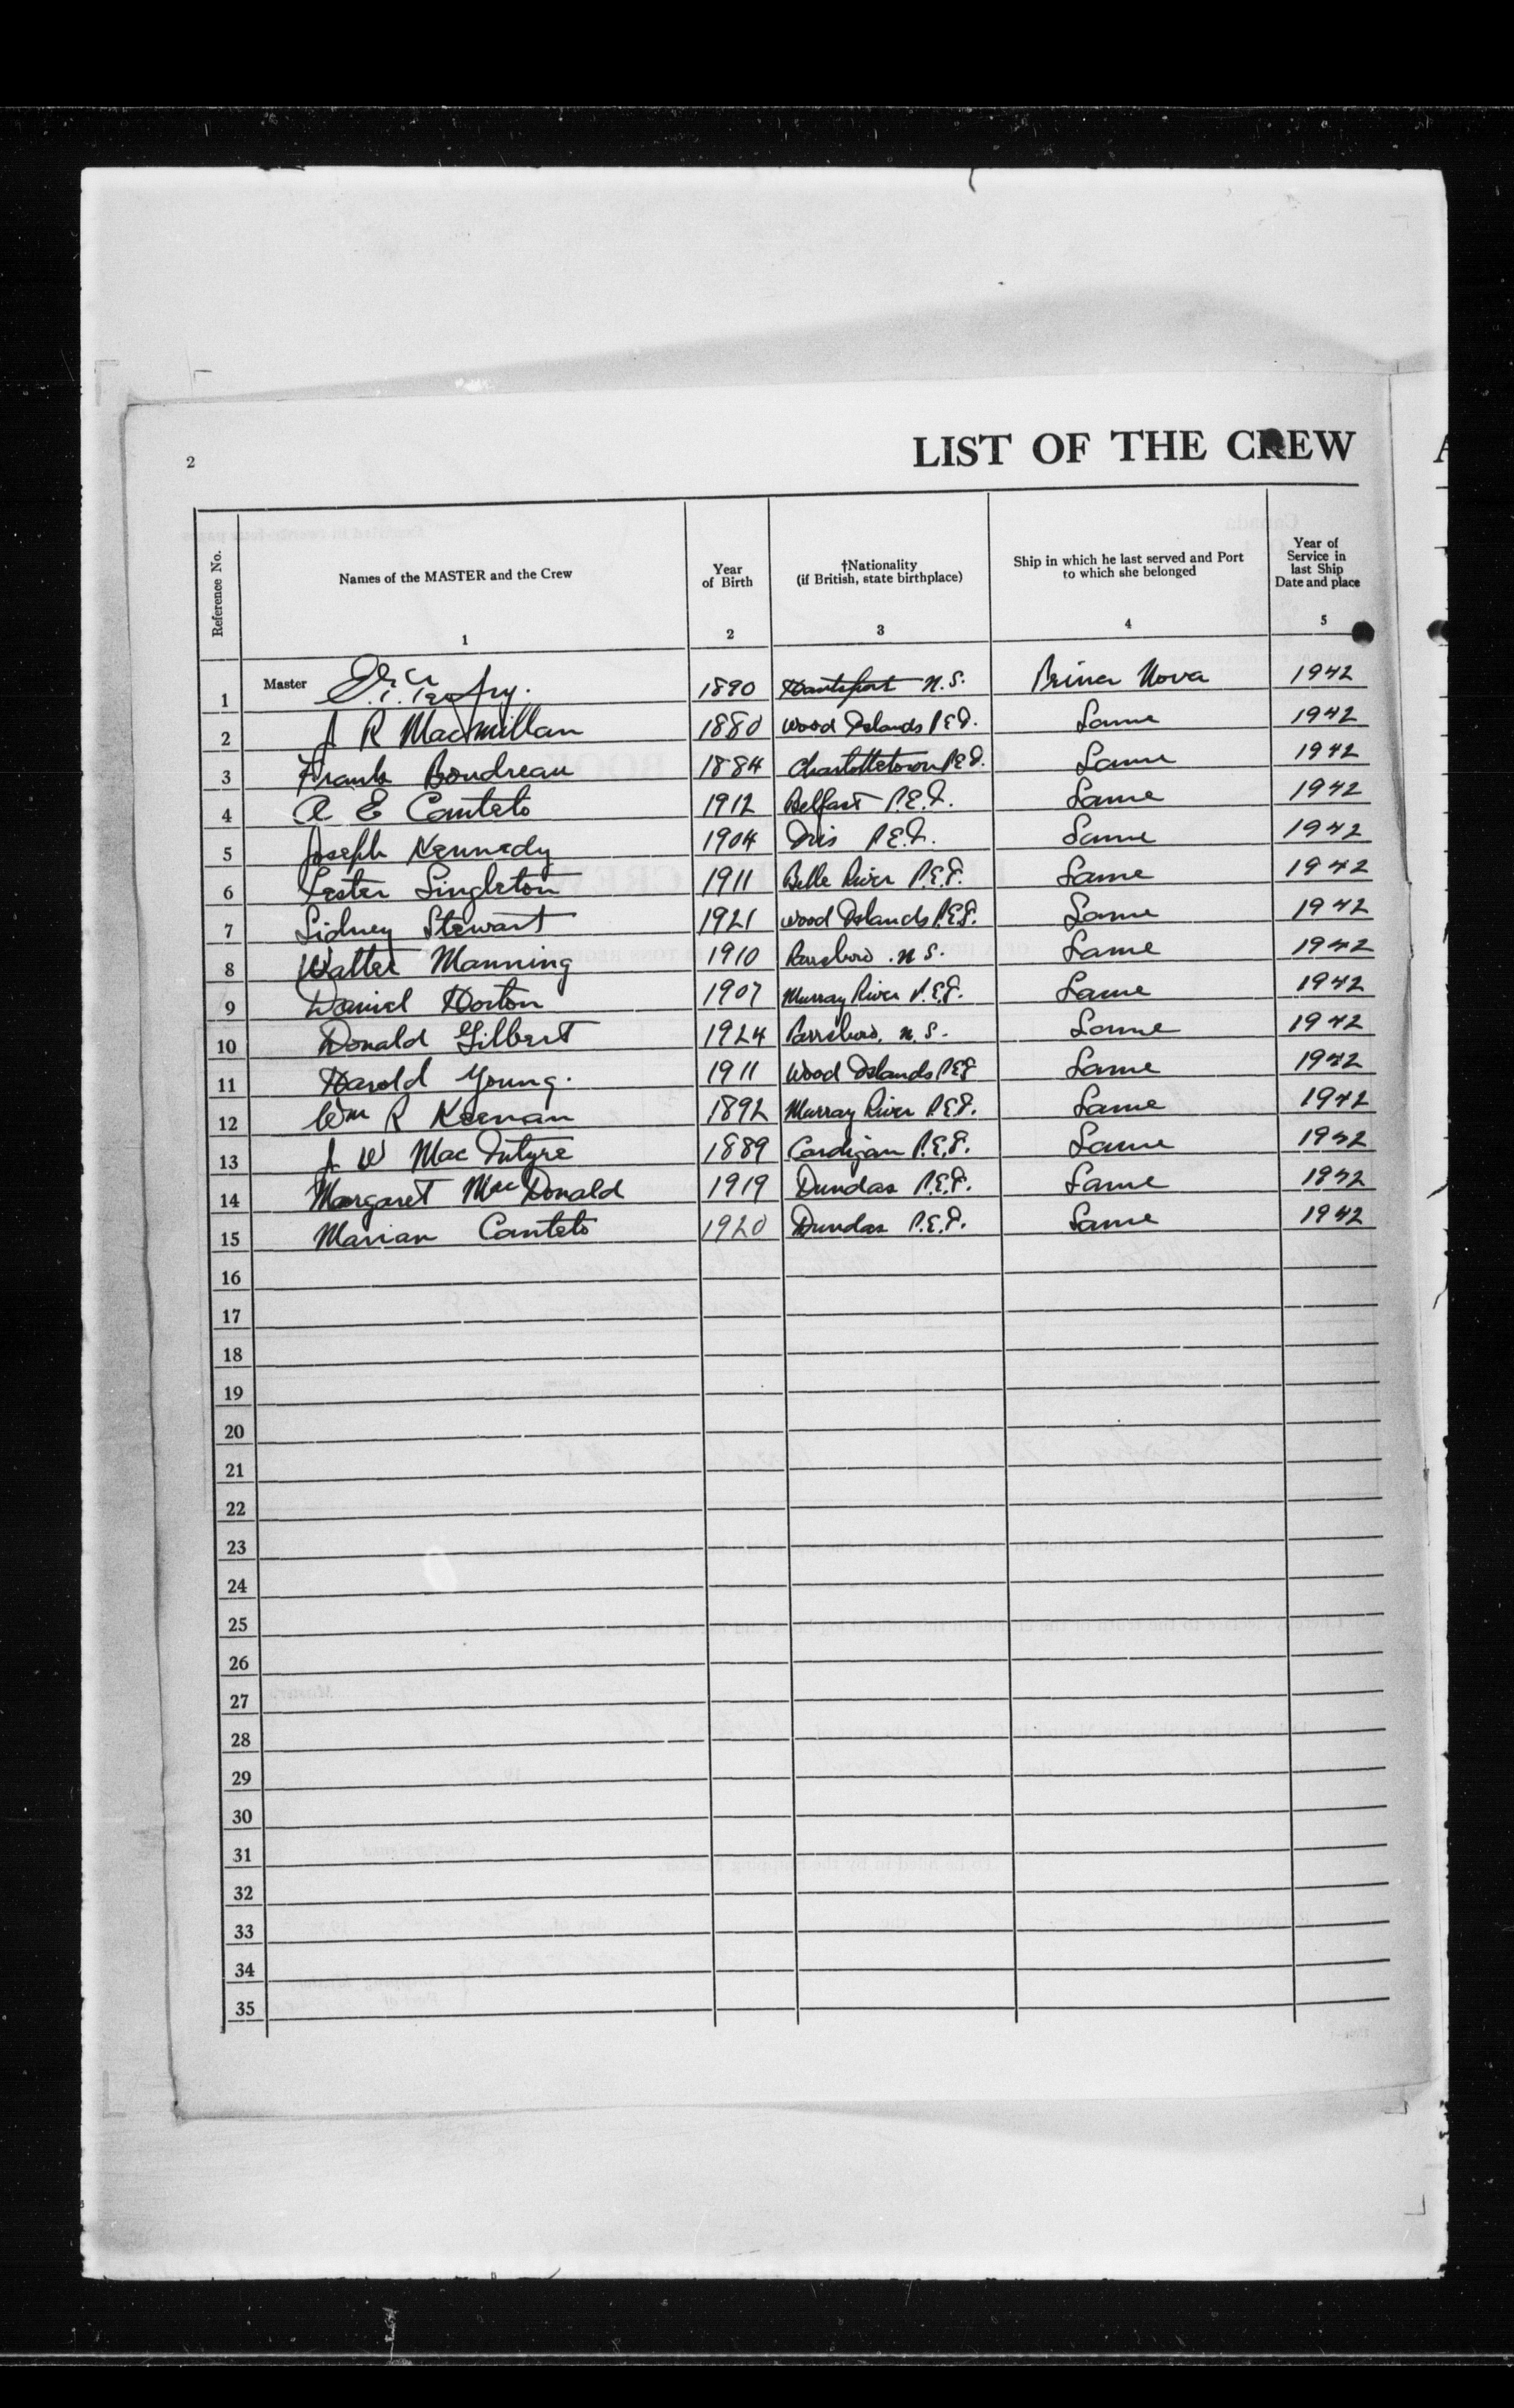 2
LIST OF THE CREW
Reference No.
Names of the MASTER and the Crew
1
Year of Birth
2
†Nationality (if British, state birthplace)
3
Ship in which he last served and Port to which she belonged
4
Year of Service in last Ship Date and place
5
1 Master 1890 Hantsport N.S. Prince Nova 1942
2 J R Macmillan 1880 Wood Islands P.E.I. Same 1942
3 Frank Boudreau 1884 Charlottetown P.E.I. Same 1942
4 A E Canteto 1912 Belfast P.E.I. Same 1942
5 Joseph Kennedy 1904 Iris P.E.I. Same 1942
6 Lester Singleton 1911 Belle River P.E.I. Same 1942
7 Sidney Stewart 1921 Wood Islands P.E.I. Same 1942
8 Walter Manning 1910 Parrsboro. N.S. Same 1942
9 Daniel Horton 1907 Murray River P.E.I. Same 1942
10 Donald Gilbert 1924 Parrsboro. N.S. Same 1942
11 Harold Young. 1911 Wood Islands P.E.I. Same 1942
12 Wm R Keenan 1892 Murray River P.E.I. Same 1942
13 J W MacIntyre 1889 Cardigan P.E.I. Same 1942
14 Margaret MacDonald 1919 Dundas P.E.I. Same 1942
15 Marian Canteto 1920 Dundas P.E.I. Same 1942
16
17
18
19
20
21
22
23
24
25
26
27
28
29
30
31
32
33
34
35